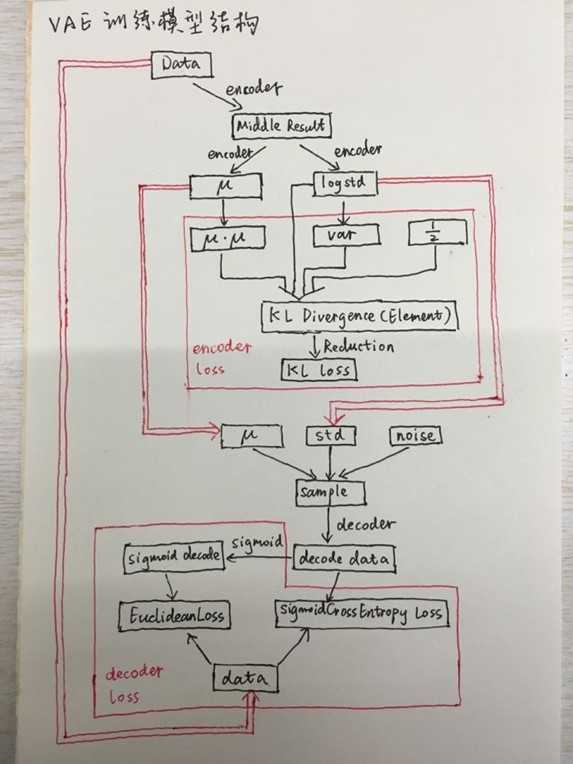 VAE 训练模型结构
Data
encoder
Middle Result
encoder encoder
μ logstd
μ·μ var 1/2
KL Divergence (Element)
encoder loss
Reduction
KL Loss
μ std noise
sample
decoder
sigmoid decode sigmoid decode data
EuclideanLoss SigmoidCrossEntropy Loss
decoder loss
data